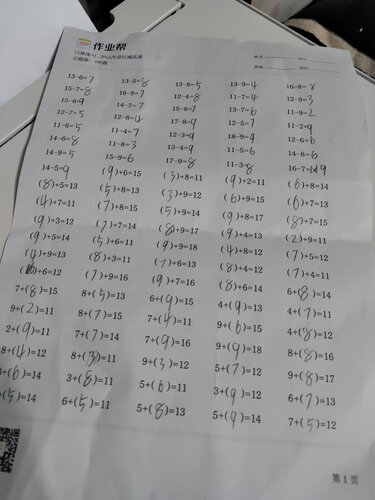 作业帮
口算练习：20以内退位减法表
总题数：100题
13-6=7 13-5=8 13-8=5 13-9=4 16-8=8
15-7=8 16-9=7 12-4=8 11-7=4 12-9=3
15-6=9 14-7=7 15-8=7 13-7=6 11-9=2
12-5=7 12-8=4 17-8=9 12-5=7 11-2=9
11-6=5 11-4=7 12-3=9 18-9=9 12-6=6
14-6=8 11-8=3 13-4=9 11-6=5 14-8=6
14-9=5 15-9=6 17-9=8 11-3=8 16-7=9
14-5=9 (9)+6=15 (3)+8=11 (9)+2=11 (6)+8=14
(8)+5=13 (5)+8=13 (3)+9=12 (6)+9=15 (8)+7=15
(4)+7=11 (7)+8=15 (5)+9=14 (9)+8=17 (8)+7=15
(9)+3=12 (7)+7=14 (8)+9=17 (9)+4=13 (2)+9=11
(9)+5=14 (5)+6=11 (9)+9=18 (4)+8=12 (7)+5=12
(4)+9=13 (8)+3=11 (7)+6=13 (8)+4=12 (7)+4=11
(6)+6=12 (7)+9=16 (9)+7=16 (9)+4=13 6+(8)=14
7+(8)=15 8+(5)=13 6+(9)=15 4+(9)=13 4+(7)=11
9+(2)=11 8+(7)=15 7+(4)=11 9+(6)=15 4+(8)=12
2+(9)=11 7+(7)=14 9+(9)=18 8+(8)=16
8+(4)=12 8+(3)=11 9+(3)=12 5+(7)=12 9+(8)=17
+(6)=14 3+(8)=11 5+(6)=11 3+(9)=12 6+(7)=13
+(5)=14 6+(5)=11 5+(8)=13 5+(9)=14 7+(5)=12
第1页